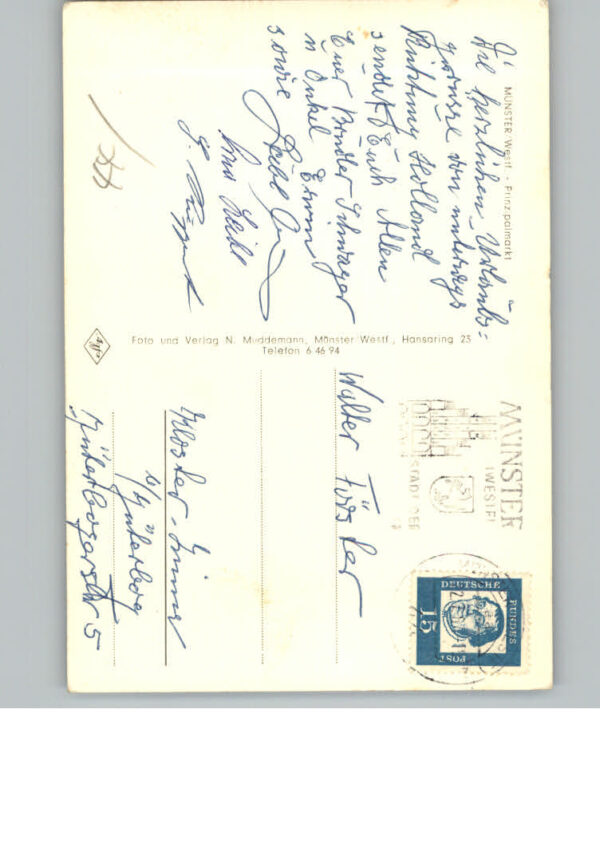 MÜNSTER/Westf. - Prinzipalmarkt
Die herzlichen Urlaubs=
grüsse von unterwegs
Richtung Holland
sendet Euch Allen
Euer Bruder Schwager
u Onkel Erwin
sowie
Heidi
Foto und Verlag N. Muddemann, Münster/Westf., Hansaring 23
Telefon 6 46 94
MÜNSTER
(WESTF)
STADT DER
DEUTSCHE
BUNDES
POST
15
Walter Förster
Kloster-Zinna
b/Jüterbog
Jüterbogerstr 5